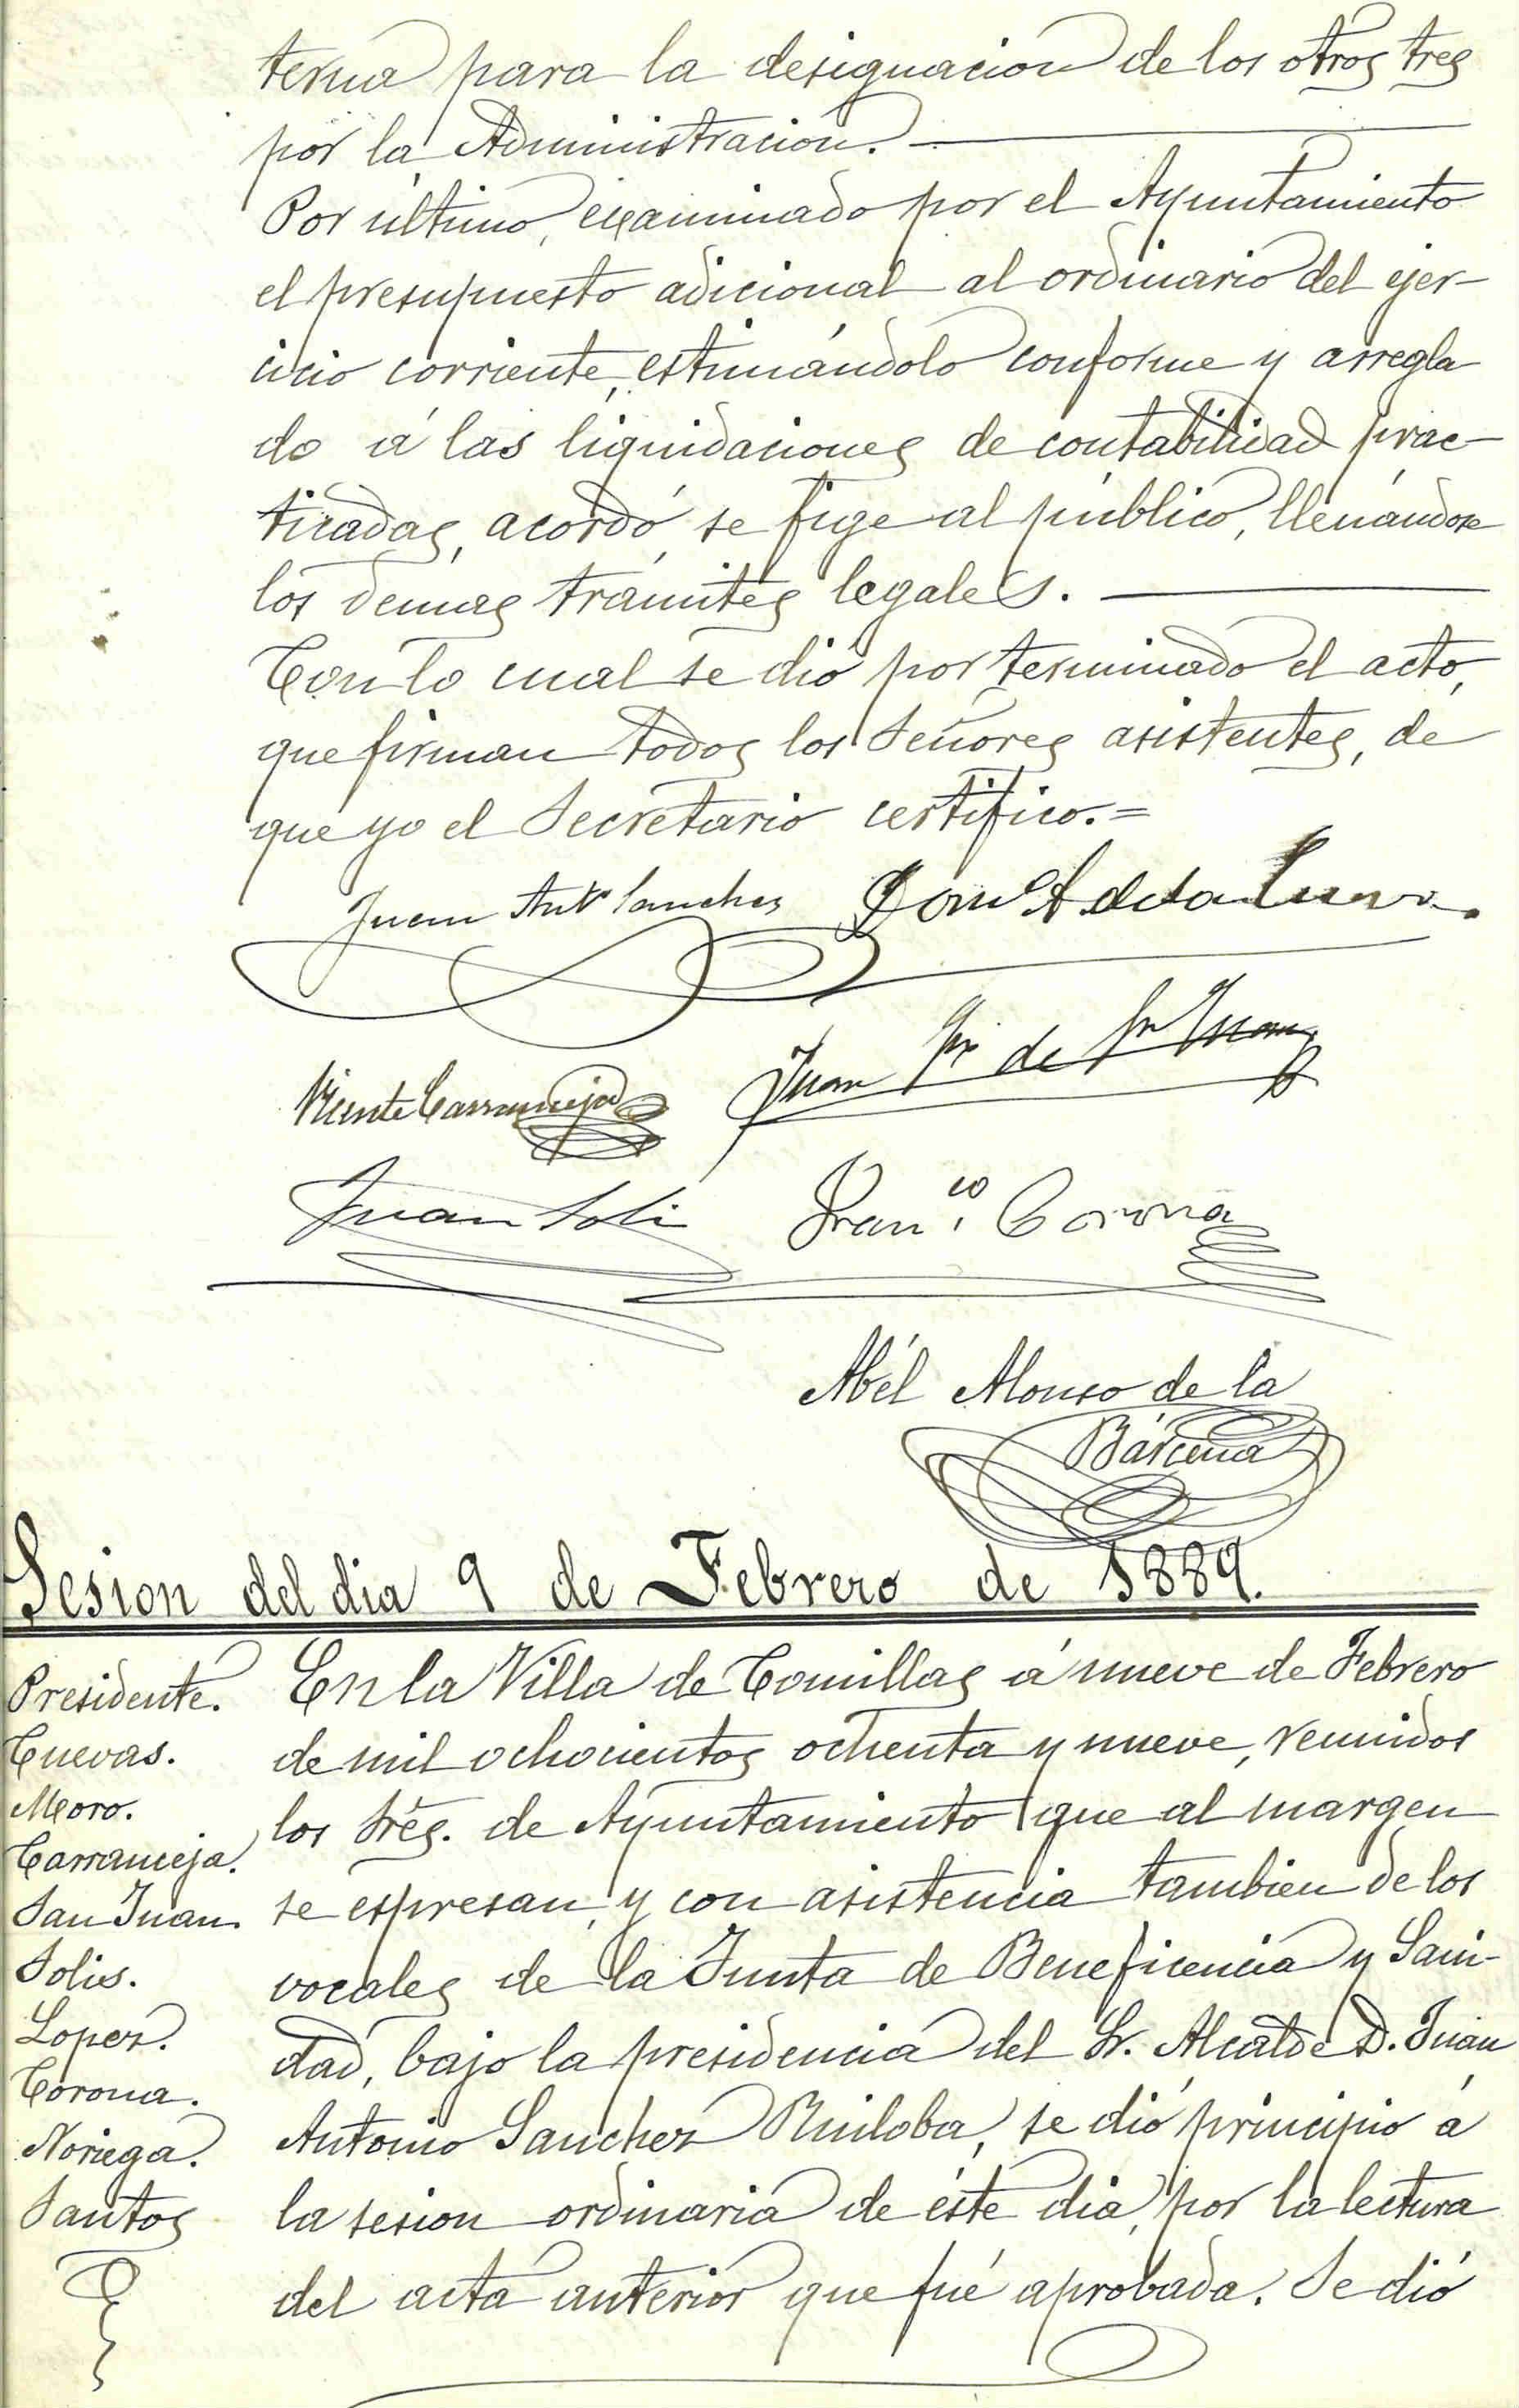 terna para la designacion de los otros tres
por la Administracion.
Por último, examinado por el Ayuntamiento
el presupuesto adicional al ordinario del ejer-
cicio corriente, estimándolo conforme y arregla
do á las liquidaciones de contabilidad prac-
ticadas, acordó, se fige al público, llenándose
los demás trámites legales.
Con lo cual se dió por terminado el acto,
que firman todos los Señores asistentes, de
que yo el Secretario certifico.=
Juan Antº Sanchez
Vicente Carranceja
Juan de Sn Juan
Juan Solis
Franco. Corona
Abél Alonso de la
Bárcena
Sesion del dia 9 de Febrero de 1889.
Presidente.
Cuevas.
Moro.
Carranceja.
San Juan.
Solis.
Lopez.
Corona.
Noriega.
Santos
En la Villa de Comillas á nueve de Febrero
de mil ochocientos ochenta y nueve, reunidos
los Srês. de Ayuntamiento que al margen
se espresan, y con asistencia tambien de los
vocales de la Junta de Beneficencia y Sani-
dad, bajo la presidencia del Sr. Alcalde D. Juan
Antonio Sanchez Ruiloba, se dió principio á
la sesion ordinaria de éste dia, por la lectura
del acta anterior que fué aprobada. Se dió